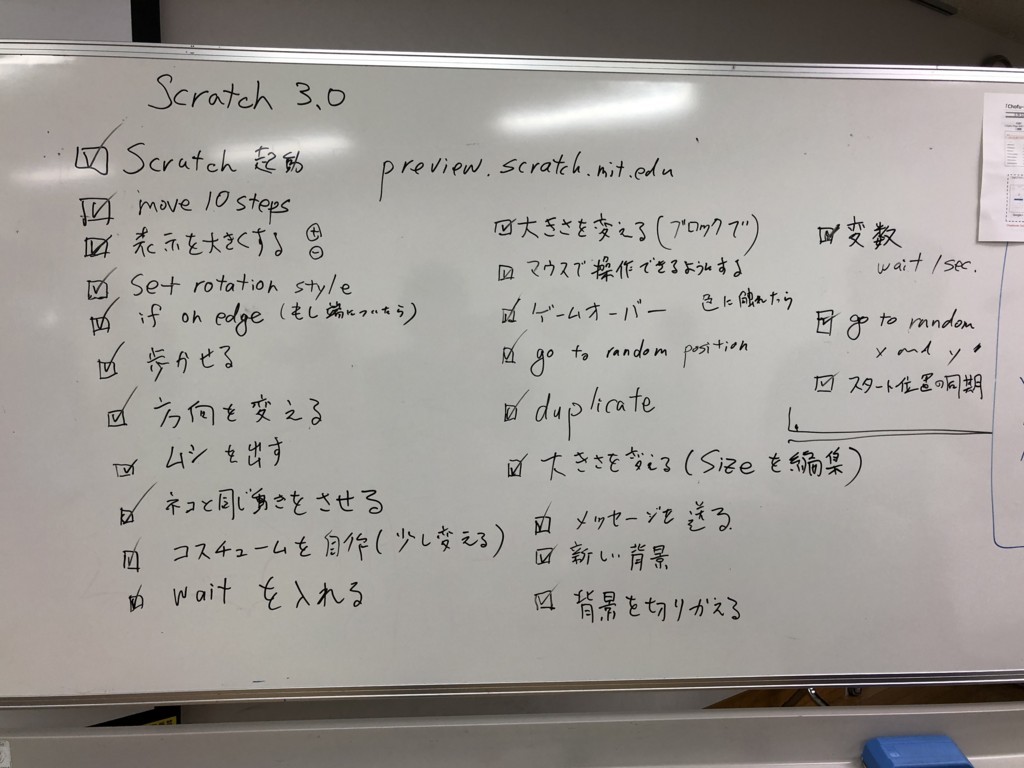 Scratch 3.0
Scratch 起動 preview.scratch.mit.edu
move 10 steps
表示を大きくする ⊕ ⊖
Set rotation style
if on edge (もし端についたら)
歩かせる
方向を変える
ムシを出す
ネコと同じ動きをさせる
コスチュームを自作(少し変える)
wait を入れる
大きさを変える(ブロックで)
マウスで操作できるようにする
ゲームオーバー 色に触れたら
go to random position
duplicate
大きさを変える(Sizeを編集)
メッセージを送る
新しい背景
背景を切りかえる
変数
wait 1 sec.
go to random
x and y
スタート位置の同期